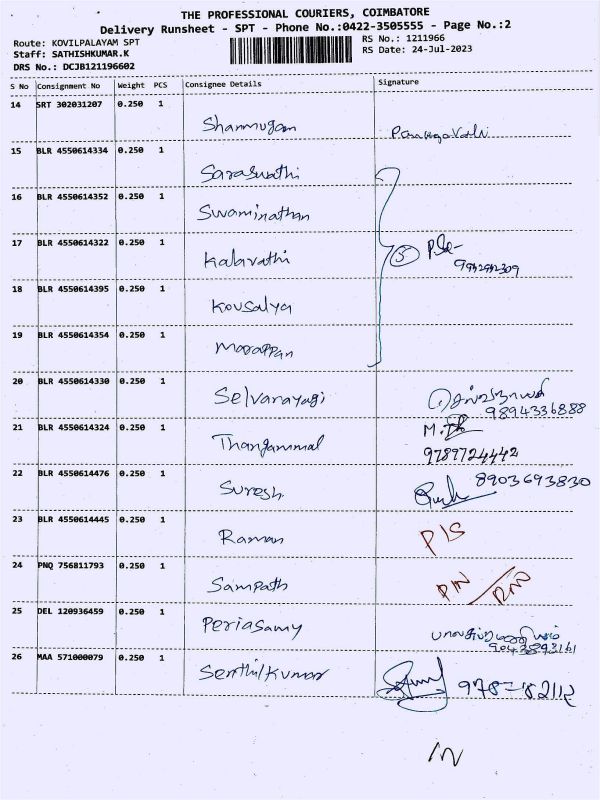 THE PROFESSIONAL COURIERS, COIMBATORE
Delivery Runsheet - SPT - Phone No.:0422-3505555 - Page No.:2
Route: KOVILPALAYAM SPT
RS No.: 1211966
Staff: SATHISHKUMAR.K
RS Date: 24-Jul-2023
DRS No.: DCJB121196602
S No Consignment No Weight PCS Consignee Details Signature
14 SRT 302031207 0.250 1 Shanmugam
15 BLR 4550614334 0.250 1 Saraswathi
16 BLR 4550614352 0.250 1 Swaminathan
17 BLR 4550614322 0.250 1 Kalavathi 5
18 BLR 4550614395 0.250 1 Kousalya
19 BLR 4550614354 0.250 1 Marappan
20 BLR 4550614330 0.250 1 Selvarayagi
9894336888
21 BLR 4550614324 0.250 1 Thangammal
9789724442
22 BLR 4550614476 0.250 1 Suresh 8903693830
23 BLR 4550614445 0.250 1 Raman P/S
24 PNQ 756811793 0.250 1 Sampath
25 DEL 120936459 0.250 1 Periasamy
26 MAA 571000079 0.250 1 Senthilkumar